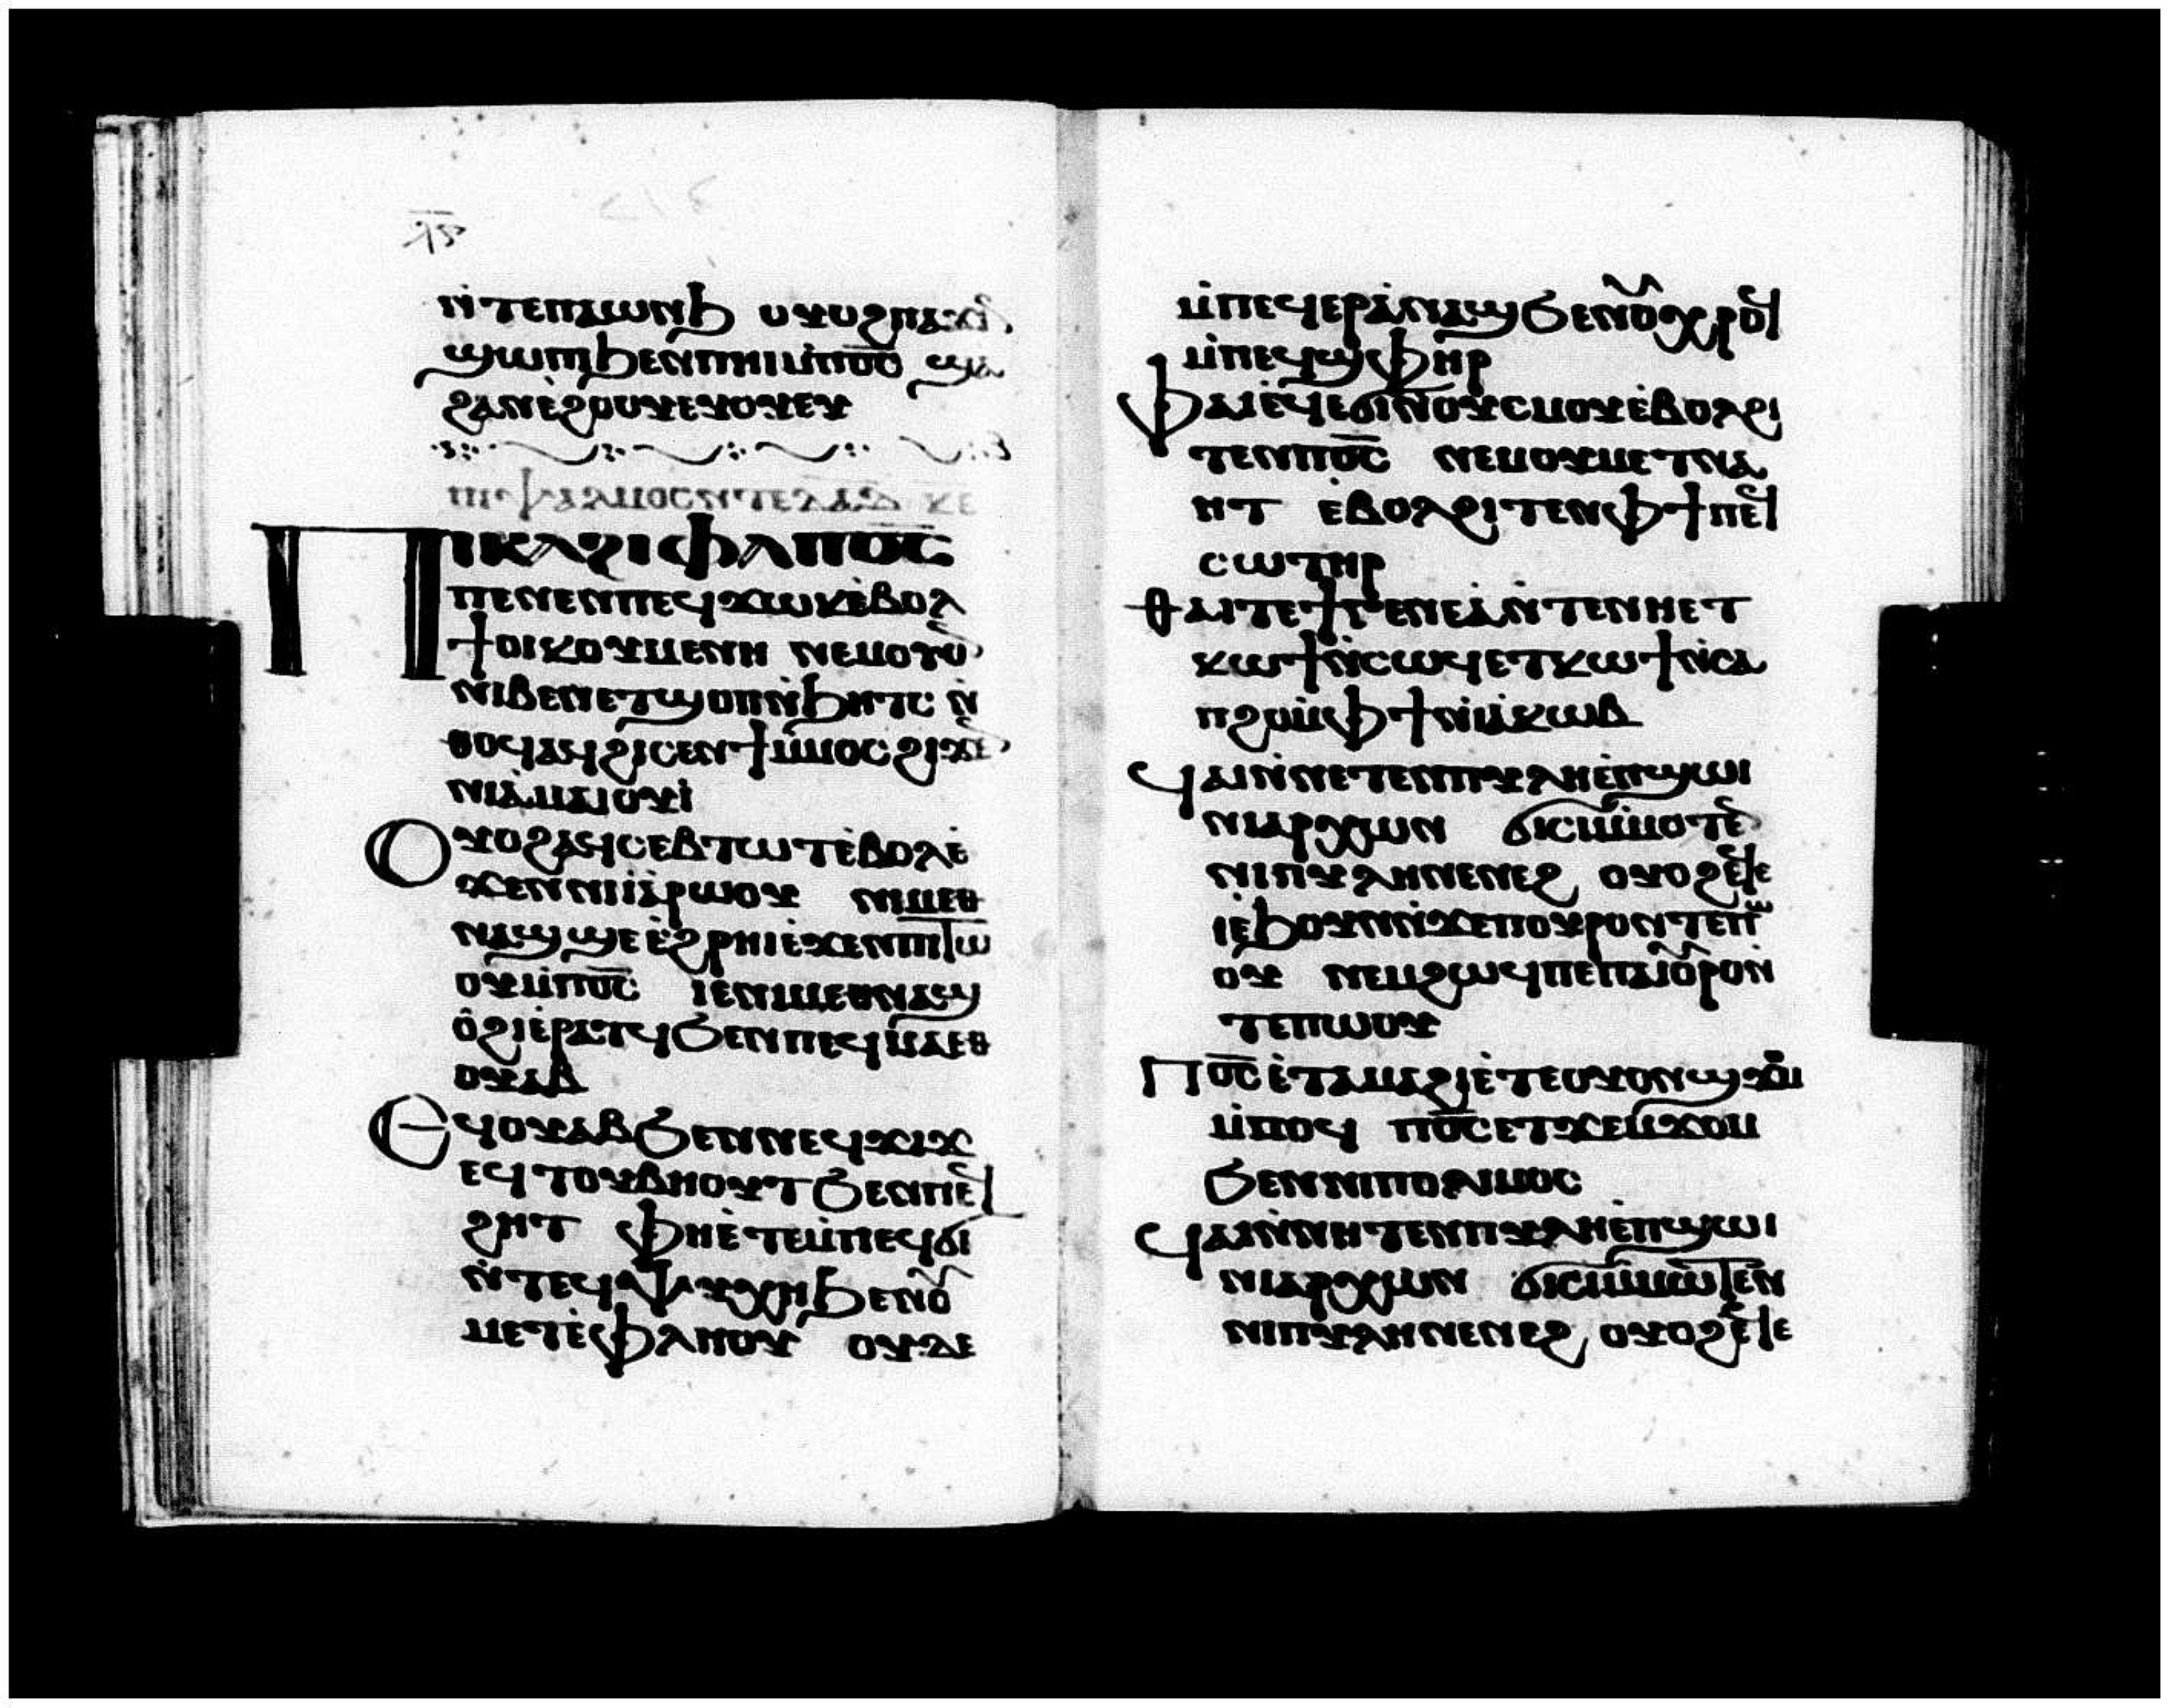 ⲛ̀ⲧⲉⲡⲁⲱⲛϧ ⲟⲩⲟϩⲡⲁϫⲓⲛ
ϣⲱⲡϧⲉⲛⲡⲏⲓⲙ̀ⲡⲟ̅ⲥ̅ ϣⲁ
ϩⲁⲛⲉ̀ϩⲟⲟⲩⲉⲩⲟⲩⲉⲩ
ⲡⲓⲯⲁⲗⲙⲟⲥⲛⲧⲉⲇⲁ̅ⲇ̅ ⲕⲉ
Ⲡⲓⲕⲁϩⲓⲫⲁⲡⲟ̅ⲥ̅
ⲡⲉⲛⲉⲙⲡⲉϥϫⲱⲕⲉ̀ⲃⲟⲗ
ϯⲟⲓⲕⲟⲩⲙⲉⲛⲏ ⲛⲉⲙⲟⲩⲟ
ⲛⲓⲃⲉⲛⲉⲧϣⲟⲡⲛ̀ϧⲏⲧⲥ ⲛ̀
ⲑⲟϥⲁϥϩⲓⲥⲉⲛϯⲙ̀ⲙⲟⲥϩⲓϫⲉ
ⲛⲓⲁ̀ⲙⲁⲓⲟⲩⲓ̀
Ⲟⲩⲟϩⲁϥⲥⲉⲃⲧⲱⲧⲉ̀ⲃⲟⲗⲉ̀
ϫⲉⲛⲛⲓⲓⲁ̀ⲣⲱⲟⲩ ⲛⲓⲙⲉⲑ
ⲛⲁϣϣⲉⲉ̀ϩⲣⲏⲓⲉ̀ϫⲉⲛⲡⲓⲧⲱ
ⲟⲩⲙ̀ⲡⲟ̅ⲥ̅ ⲓⲉⲛⲓⲙⲉⲑⲛⲁϣ
ⲟ̀ϩⲓⲉ̀ⲣⲁⲧϥϧⲉⲛⲡⲉϥⲙⲁⲉⲑ
ⲟⲩⲁⲃ
Ⲉϥⲟⲩⲁⲃϧⲉⲛⲛⲉϥϫⲓϫ
ⲉϥⲧⲟⲩⲃⲏⲟⲩⲧϧⲉⲛⲡⲉϥ
ϩⲏⲧ ⲫⲏⲉ̀ⲧⲉⲙ̀ⲡⲉϥϭⲓ
ⲛ̀ⲧⲉϥⲯⲩⲭⲏϧⲉⲛⲟ̀
ⲙⲉⲧⲉ̀ⲫⲗⲏⲟⲩ ⲟⲩⲇⲉ
ⲙ̀ⲡⲉϥⲉⲣⲁ̀ⲛⲁϣϧⲉⲛⲟ̀ⲭⲣⲟϥ
ⲙ̀ⲡⲉϥϣⲫⲏⲣ
Ⲫⲁⲓⲉ̀ϥⲉϭⲓⲛ̀ⲟⲩⲥⲙⲟⲩⲉ̀ⲃⲟⲗϩⲓ
ⲧⲉⲛⲡⲟ̅ⲥ̅ ⲛⲉⲙⲟⲩⲙⲉⲧⲛⲁ
ⲏⲧ ⲉ̀ⲃⲟⲗϩⲓⲧⲉⲛⲫϯⲡⲉϥ
ⲥⲱⲧⲏⲣ
Ⲑⲁⲓⲧⲉϯⲅⲉⲛⲉⲁ̀ⲛⲧⲉⲛⲏⲉⲧ
ⲕⲱϯⲛ̀ⲥⲱϥⲉⲧⲕⲱϯⲛ̀ⲥⲁ
ⲡϩⲟⲙ̀ⲫϯⲛ̀ⲓⲁ̀ⲕⲱⲃ
Ϥⲁⲓⲛ̀ⲛⲉⲧⲉⲛⲡⲩⲗⲏⲉ̀ⲡϣⲱⲓ
ⲛⲓⲁⲣⲭⲱⲛ ϭⲓⲥⲓⲙ̀ⲙⲟⲧⲉ
ⲛⲓⲡⲩⲗⲏⲛⲉⲛⲉϩ ⲟⲩⲟϩⲉ̀ϥⲉ
ⲓⲉ̀ϧⲟⲩⲛⲛ̀ϫⲉⲡⲟⲩⲣⲟⲛⲧⲉⲡⲱ
ⲟⲩ ⲛⲉⲙϩⲱϥⲡⲉⲡⲁⲓⲟ̀ⲣⲟⲛ
ⲧⲉⲡⲱⲟⲩ
Ⲡⲟ̅ⲥ̅ⲉ̀ⲧⲁⲙⲁϩⲓⲉ̀ⲧⲉⲟⲩⲟⲛϣϫⲟⲙ
ⲙ̀ⲙⲟϥ ⲡⲟ̅ⲥ̅ⲉⲧϫⲉⲙϫⲟⲙ
ϧⲉⲛⲛⲓⲡⲟⲗⲓⲙⲟⲥ
Ϥⲁⲓⲛ̀ⲛⲏⲧⲉⲛⲡⲩⲗⲏⲉ̀ⲡϣⲱⲓ
ⲛⲓⲁⲣⲭⲱⲛ ϭⲓⲥⲓⲙ̀ⲙⲱⲧⲉⲛ
ⲛⲓⲡⲩⲗⲏⲛⲉⲛⲉϩ ⲟⲩⲟϩⲉ̀ϥⲉ